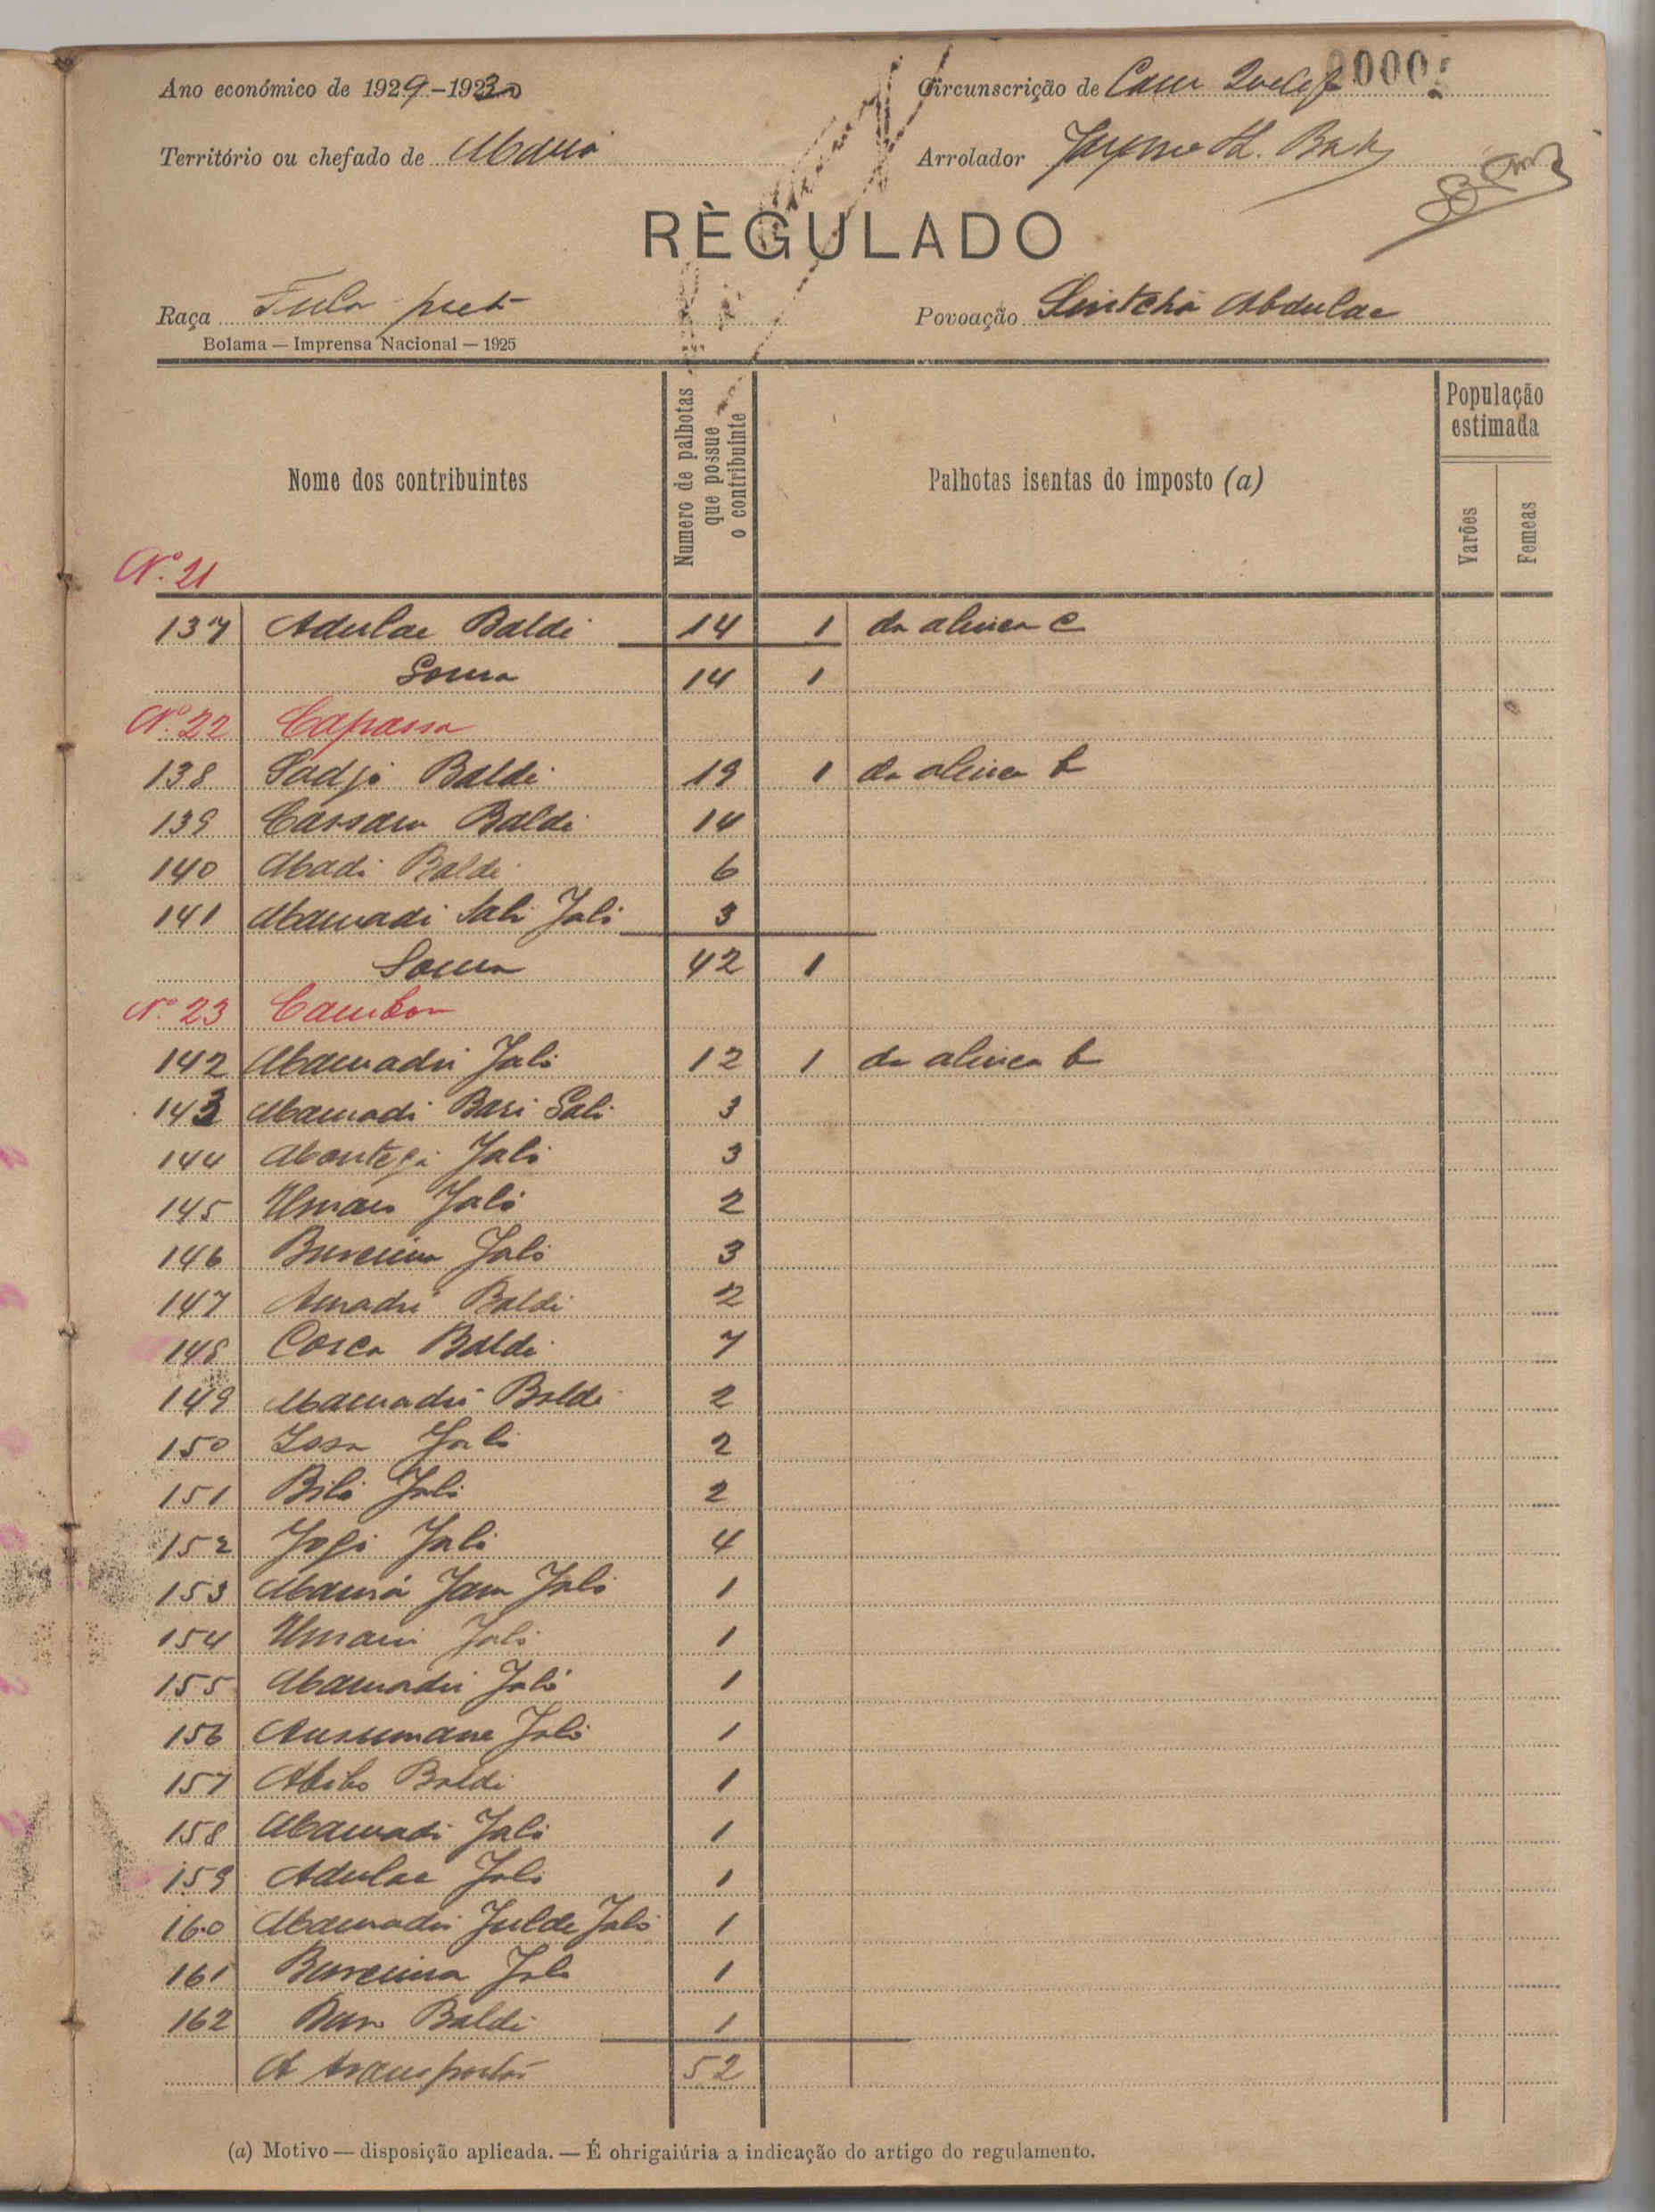 0000
Ano económico de 1929-1930 Circunscrição de
Território ou chefado de Arrolador
RÈGULADO
Raça Fula preto Povoação Sintchã Abdulae
Bolama — Imprensa Nacional — 1925
Nome dos contribuintes
Numero de palhotas que possue o contribuinte
Palhotas isentas do imposto (a)
População estimada
Varões
Femeas
Nº. 21
137 Adulae Baldé 14 1 da alinea C
Soma 14 1
Nº 22 Capassa
138 Sadjo Baldé 19 1 da alinea b
139 Cassam Baldé 14
140 Madi Baldé 6
141 Mamadi Sali Jaló 3
Soma 42 1
Nº 23 Cambor
142 Mamadú Jaló 12 1 da alinea b
143 Mamadi Bari Sali 3
144 Jaló 3
145 Umaro Jaló 2
146 Bureima Jaló 3
147 Amadú Baldé 2
148 Baldé 7
149 Mamadú Baldé 2
150 Issa Jaló 2
151 Biló Jaló 2
152 Jaló 4
153 Mamá Jam Jaló 1
154 Jaló 1
155 Mamadú Jaló 1
156 Ansumane Jaló 1
157 Abibo Baldé 1
158 Mamadi Jaló 1
159 Adulae Jaló 1
160 Mamadú Julde Jaló 1
161 Bureima Jaló 1
162 Baldé 1
A transportar 52
(a) Motivo — disposição aplicada. — É ohrigaiúria a indicação do artigo do regulamento.